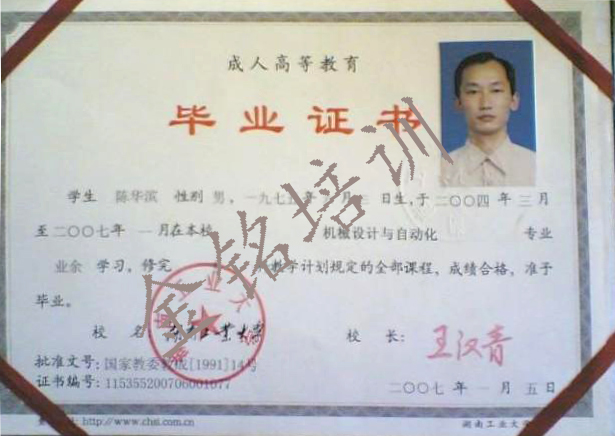 成人高等教育
毕业证书
学生 陈华滨 性别 男，一九七五年 月 日生，于二〇〇四年三月
至二〇〇七年 一月在本校 机械设计与自动化 专业
业余 学习，修完 教学计划规定的全部课程，成绩合格，准于
毕业。
校 名： 工业大学 校 长： 王汉青
批准文号：国家教委教成[1991]14号
证书编号：115355200706001077
二〇〇七年 一月五日
http://www.chsi.com.cn 湖南工业大学
金铭培训